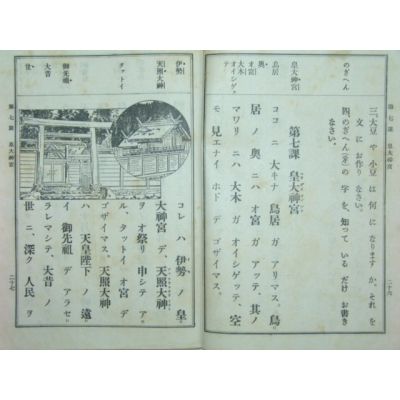 のぎへん
皇大神宮
鳥居
奥
オ宮
大木
オイシゲッテ
三、大豆 や 小豆 は 何 に なります か、それ を
文 に お作り なさい。
四、のぎへん(禾)の 字 を、知って いる だけ お書き
なさい。
第七課 皇大神宮
ココ ニ 大キナ 鳥居 ガ アリマス。鳥
居 ノ 奥 ニハ オ宮 ガ アッテ、其ノ
マワリ ニハ 大木 ガ オイシゲッテ、空
モ 見エナイ ホド デ ゴザイマス。
第七課 皇大神宮
二十六
伊勢
天照大神
タットイ
御先祖
大昔
世
コレ ハ 伊勢 ノ 皇
大神宮 デ、天照大神
ヲ オ祭リ 申シテ ア
ル、タットイ オ宮 デ
ゴザイマス。天照大神
ハ 天皇陛下 ノ 遠
イ 御先祖 デ アラセ
ラレマシテ、大昔 ノ
世 ニ、深ク 人民 ヲ
第七課 皇大神宮
二十七